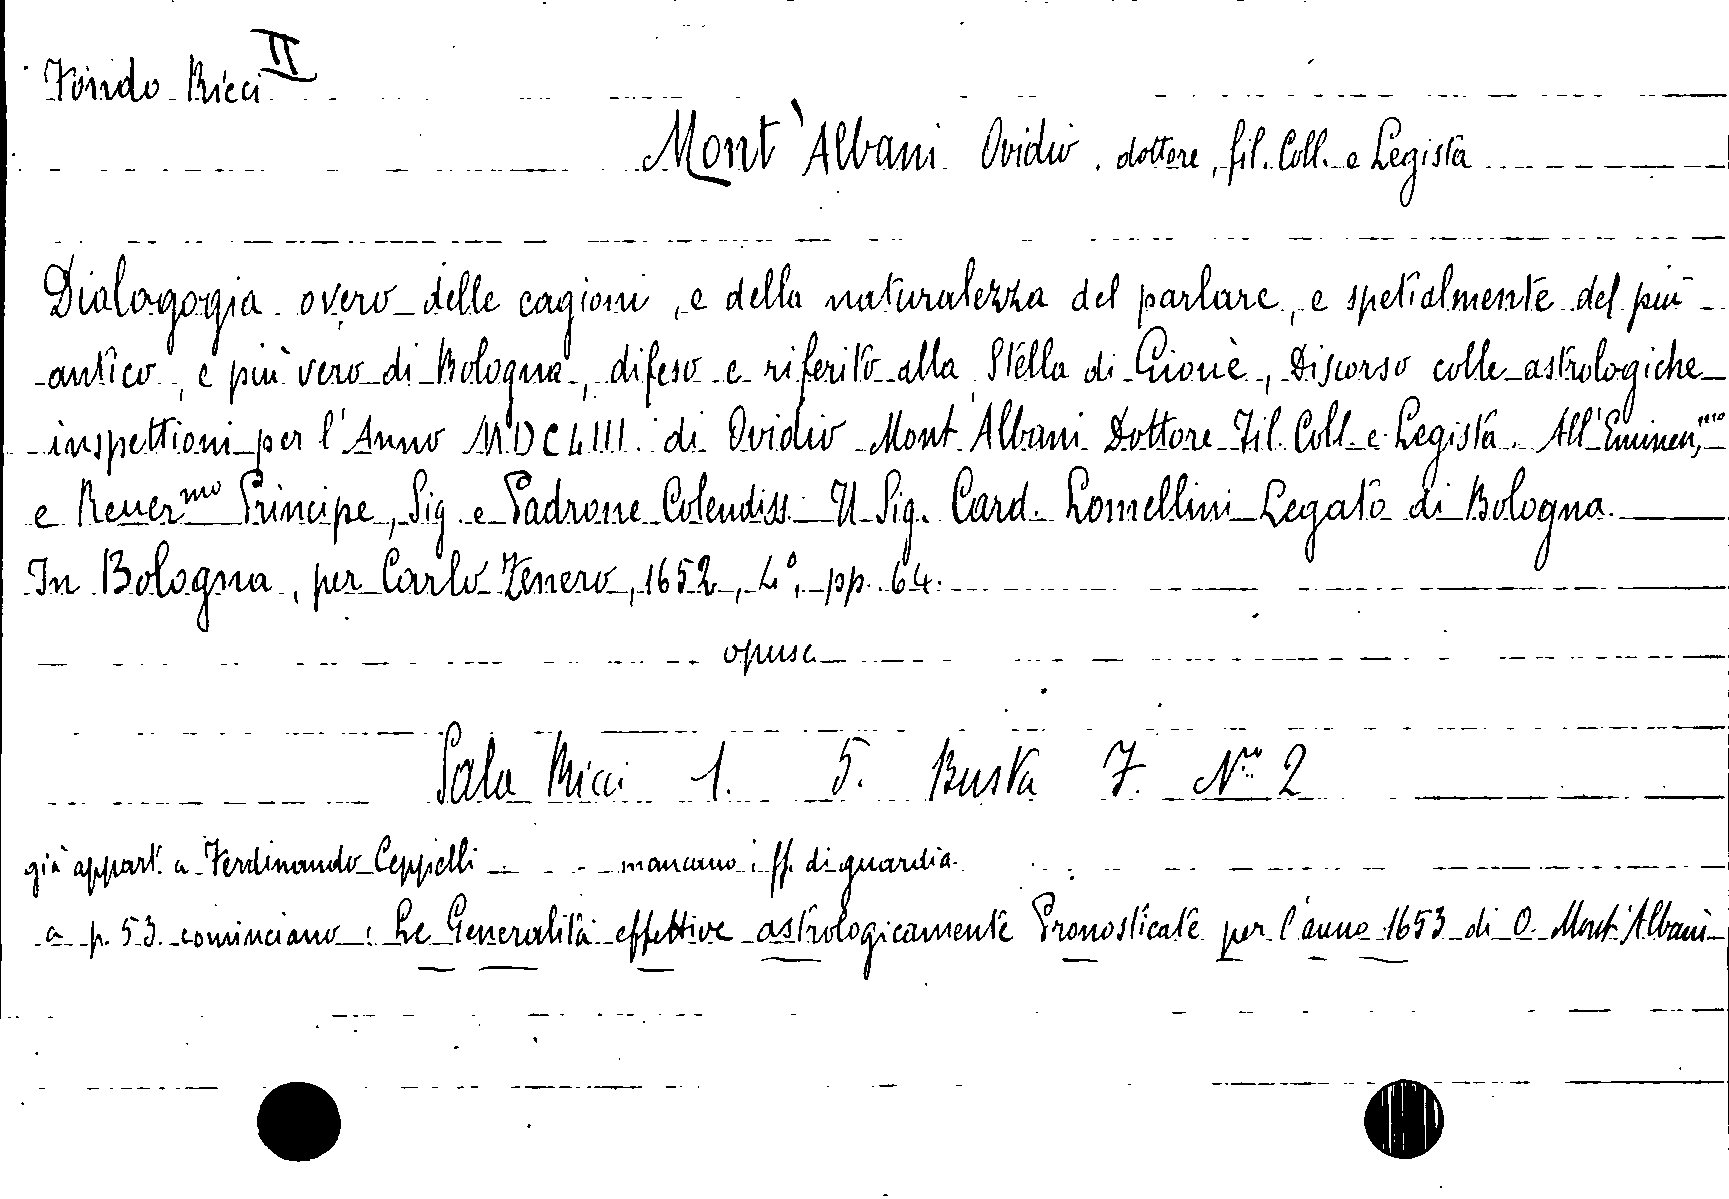 Fondo Ricci II
Mont'Albani Ovidio, dottore, fil. Coll. e Legista
Dialogogia overo delle cagioni, e della naturalezza del parlare, e spetialmente del più
antico, e più vero di Bologna, difeso e riferito alla Stella di Giove, Discorso colle astrologiche
inspettioni per l'Anno MDCLIII. di Ovidio Mont'Albani Dottore Fil. Coll. e Legista. All'Eminen.mo
e Reuer.mo Principe, Sig. e Padrone Colendiss. Il Sig. Card. Lomellini Legato di Bologna.
In Bologna, per Carlo Zenero, 1652, 4°, pp. 64.
opusc
Sala Ricci 1. 5. Busta 7. Nro 2
già appart. a Ferdinando Ceppelli mancano i ff. di guardia.
a p. 53. cominciano: Le Generalità effettive astrologicamente Pronosticate per l'anno 1653 di O. Mont'Albani